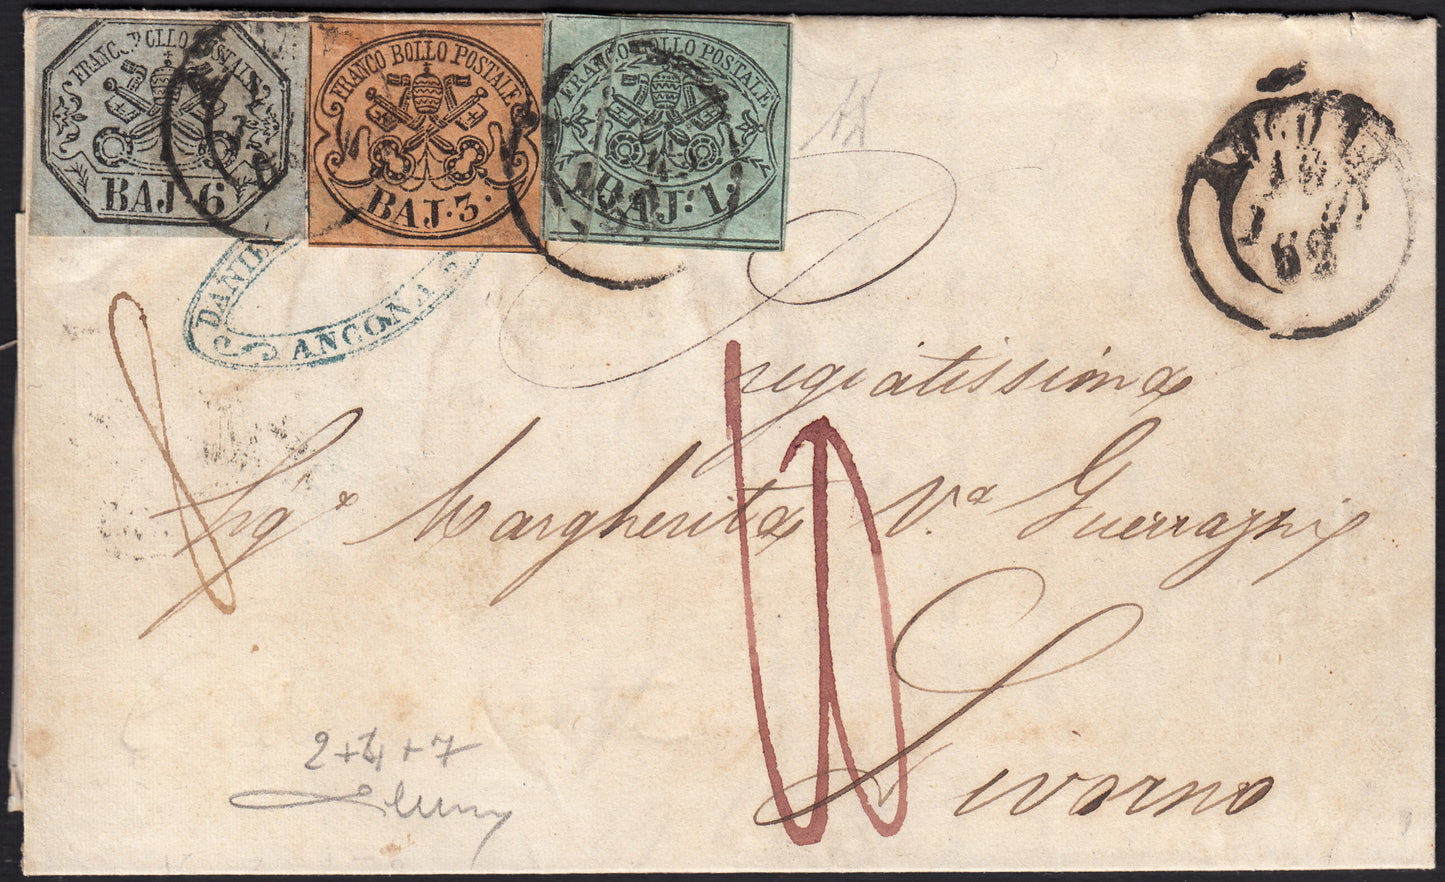 FRANCO BOLLO POSTALE
BAJ. 6
FRANCO BOLLO POSTALE
BAJ. 3.
FRANCO BOLLO POSTALE
BAJ. 1.
ANCONA
Pregiatissima
Sig.ª Margherita V.ª Guerrazzi
Livorno
2+4+7